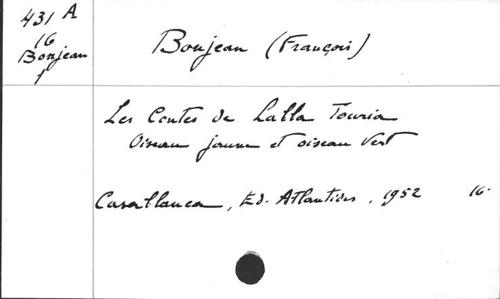 431 A
16
Bonjean
1
Bonjean (François)
Les Contes de Lalla Touria
Oiseau jaune et oiseau vert
Casablanca, Ed. Atlantides, 1952 16°